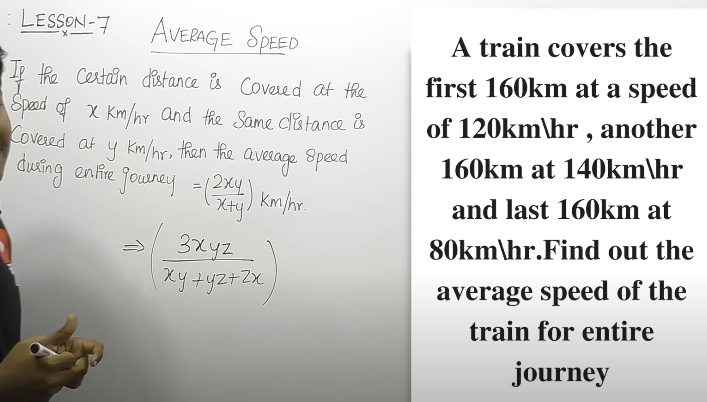 : LESSON-7
AVERAGE SPEED
If the certain distance is covered at the
Speed of x Km/hr and the Same distance is
Covered at y Km/hr, then the average speed
during entire journey = (2xy/x+y) Km/hr.
⇒ (3xyz/xy+yz+zx)
A train covers the
first 160km at a speed
of 120km\hr , another
160km at 140km\hr
and last 160km at
80km\hr.Find out the
average speed of the
train for entire
journey